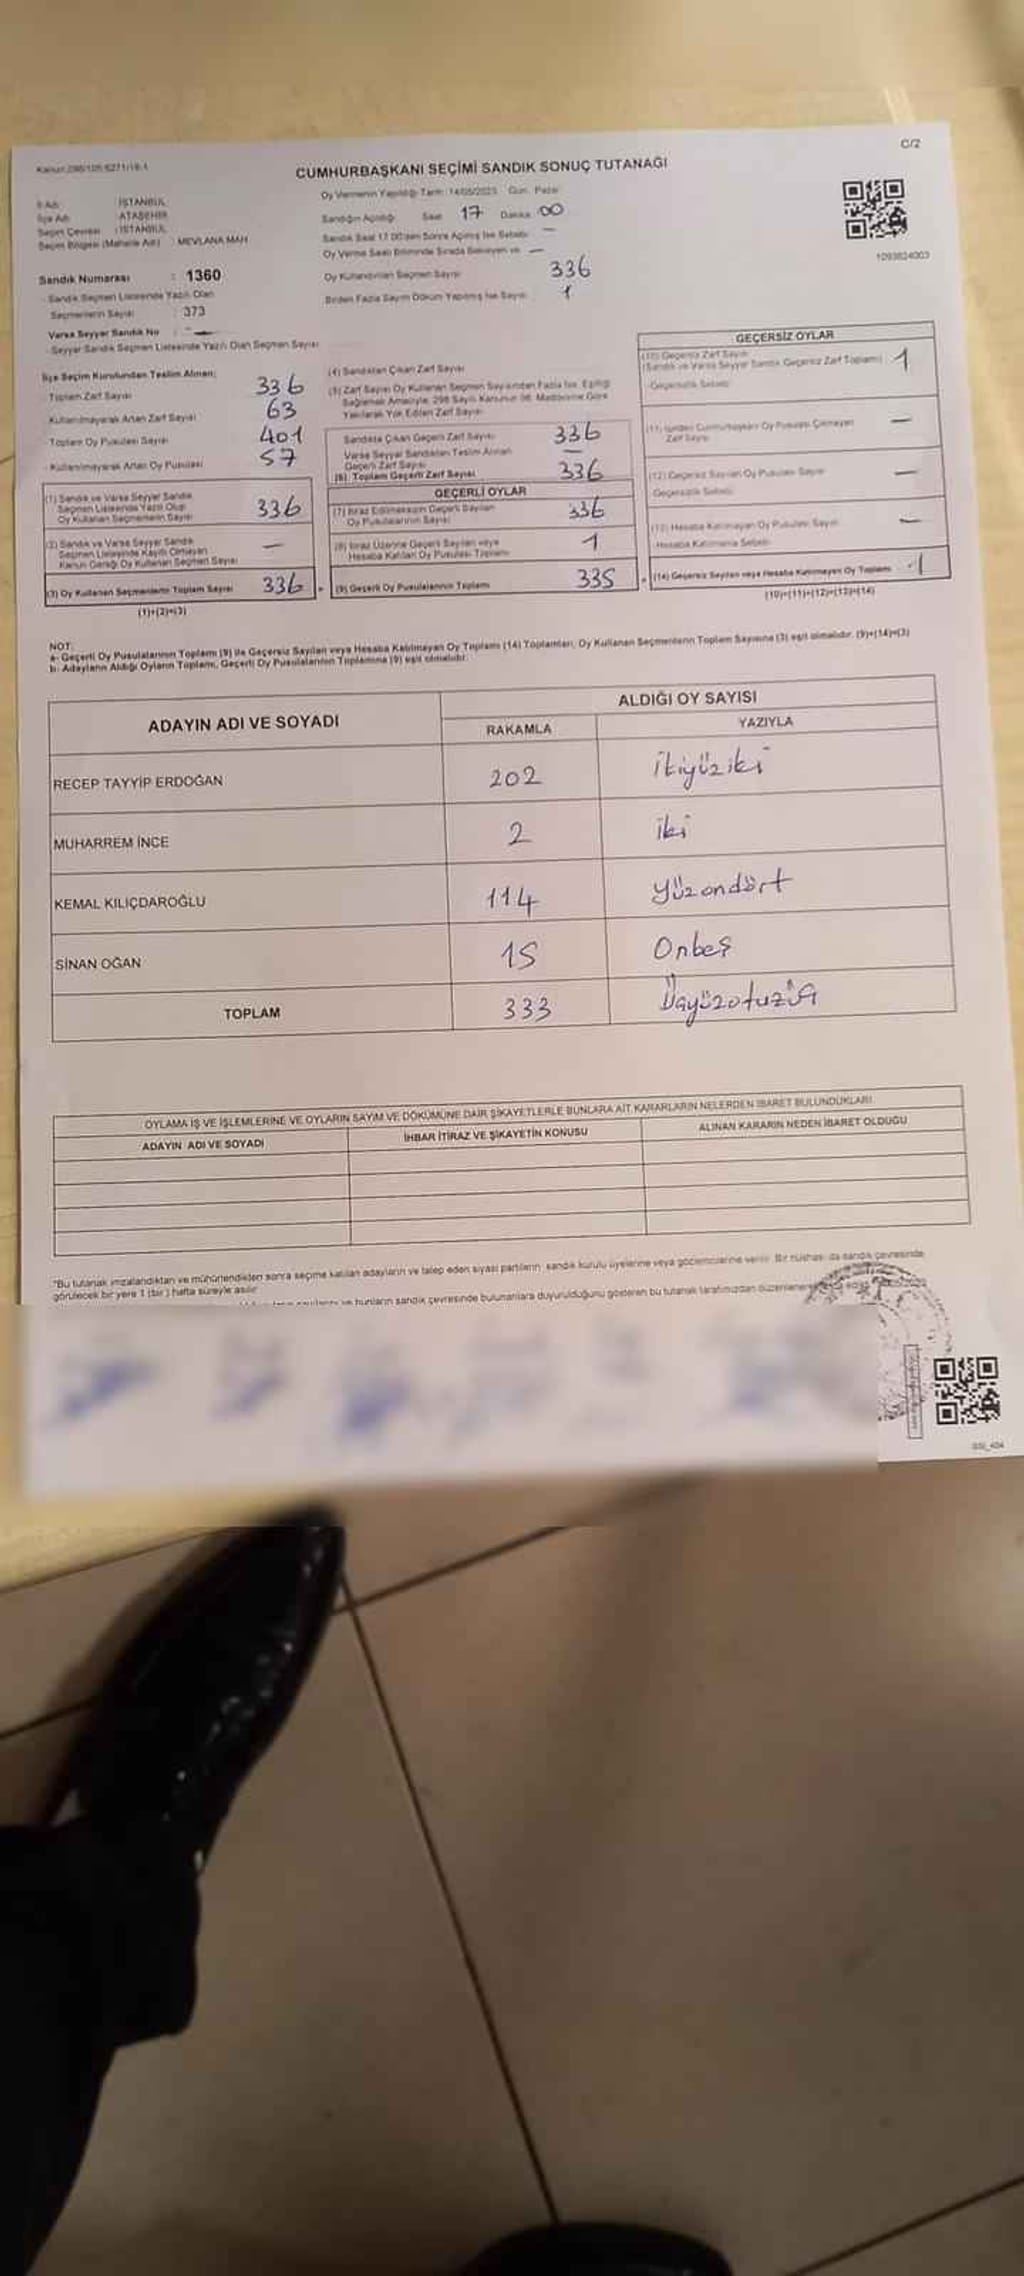 C/2
CUMHURBAŞKANI SEÇİMİ SANDIK SONUÇ TUTANAĞI
Oy Vermenin Yapıldığı Tarih: 14/05/2023 Gün: Pazar
İl Adı : İSTANBUL
İlçe Adı : ATAŞEHİR
Seçim Çevresi : İSTANBUL
Seçim Bölgesi (Mahalle Adı) : MEVLANA MAH
Sandığın Açıldığı Saat 17 Dakika 00
Sandık Saat 17.00'den Sonra Açılmış İse Sebebi: —
1093624003
Sandık Numarası : 1360
Oy Kullandırılan Seçmen Sayısı: 336
Birden Fazla Sayım Döküm Yapılmış İse Sayısı: 1
Sandık Seçmen Listesinde Yazılı Olan
Seçmenlerin Sayısı : 373
Varsa Seyyar Sandık No : —
- Seyyar Sandık Seçmen Listesinde Yazılı Olan Seçmen Sayısı:
İlçe Seçim Kurulundan Teslim Alınan;
Toplam Zarf Sayısı 336
Kullanılmayarak Artan Zarf Sayısı 63
- Toplam Oy Pusulası Sayısı 401
- Kullanılmayarak Artan Oy Pusulası 57
(1) Sandık ve Varsa Seyyar Sandık
Seçmen Listesinde Yazılı Olup
Oy Kullanan Seçmenlerin Sayısı 336
(2) Sandık ve Varsa Seyyar Sandık
Seçmen Listesinde Kayıtlı Olmayan
Kanun Gereği Oy Kullanan Seçmen Sayısı —
(3) Oy Kullanan Seçmenlerin Toplam Sayısı 336
(1)+(2)=(3)
(4) Sandıktan Çıkan Zarf Sayısı
(5) Zarf Sayısı Oy Kullanan Seçmen Sayısından Fazla İse, Eşitliği
Sağlamak Amacıyla, 298 Sayılı Kanunun 98. Maddesine Göre
Yakılarak Yok Edilen Zarf Sayısı
Sandıkta Çıkan Geçerli Zarf Sayısı 336
Varsa Seyyar Sandıktan Teslim Alınan
Geçerli Zarf Sayısı —
(6) Toplam Geçerli Zarf Sayısı 336
GEÇERLİ OYLAR
(7) İtiraz Edilmeksizin Geçerli Sayılan
Oy Pusulalarının Sayısı 336
(8) İtiraz Üzerine Geçerli Sayılan veya
Hesaba Katılan Oy Pusulası Toplamı 1
(9) Geçerli Oy Pusulalarının Toplamı 335
GEÇERSİZ OYLAR
(10) Geçersiz Zarf Sayısı
(Sandık ve Varsa Seyyar Sandık Geçersiz Zarf Toplamı) 1
-Geçersizlik Sebebi:
(11) İçinden Cumhurbaşkanı Oy Pusulası Çıkmayan
Zarf Sayısı —
(12) Geçersiz Sayılan Oy Pusulası Sayısı —
Geçersizlik Sebebi:
(13) Hesaba Katılmayan Oy Pusulası Sayısı —
-Hesaba Katılmama Sebebi:
(14) Geçersiz Sayılan veya Hesaba Katılmayan Oy Toplamı 1
(10)+(11)+(12)+(13)=(14)
NOT:
a- Geçerli Oy Pusulalarının Toplam (9) ile Geçersiz Sayılan veya Hesaba Katılmayan Oy Toplamı (14) Toplamları, Oy Kullanan Seçmenlerin Toplam Sayısına (3) eşit olmalıdır. (9)+(14)=(3)
b- Adayların Aldığı Oyların Toplamı, Geçerli Oy Pusulalarının Toplamına (9) eşit olmalıdır.
ADAYIN ADI VE SOYADI
ALDIĞI OY SAYISI
RAKAMLA YAZIYLA
RECEP TAYYİP ERDOĞAN 202 ikiyüziki
MUHARREM İNCE 2 iki
KEMAL KILIÇDAROĞLU 114 yüzondört
SİNAN OĞAN 15 Onbeş
TOPLAM 333
OYLAMA İŞ VE İŞLEMLERİNE VE OYLARIN SAYIM VE DÖKÜMÜNE DAİR ŞİKAYETLERLE BUNLARA AİT KARARLARIN NELERDEN İBARET BULUNDUKLARI
ADAYIN ADI VE SOYADI
İHBAR İTİRAZ VE ŞİKAYETİN KONUSU
ALINAN KARARIN NEDEN İBARET OLDUĞU
"Bu tutanak imzalandıktan ve mühürlendikten sonra seçime katılan adayların ve talep eden siyasi partilerin, sandık kurulu üyelerine veya gözlemcilerine verilir. Bir nüshası da sandık çevresinde
görülecek bir yere 1 (bir) hafta süreyle asılır.
ve bunların sandık çevresinde bulunanlara duyurulduğunu gösteren bu tutanak tarafımızdan